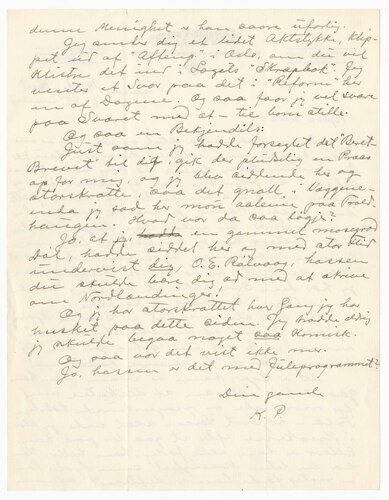 denne Menighet er han saare ufordig.
Jeg sender dig et lidet Aktstykke, klip-
pet ud af "Aftenp" i Oslo, om du vil
klistre det ind i Lagets "Skrapbok". Jeg
venter et Svar paa det i "Reform" her
en af Dagene. Og saa faar jeg vel svare
paa Svaret med at - tie bom stille.
Og saa en Bekjendels:
Just som jeg hadde forseglet det "Beret-
Brevit" til dig, gik der pludselig en Praas
op for mig, og jeg blev siddende her og
storskratte, saa det gnall i Væggene
enda jeg sad her mon aalein paa Hold-
haugen. Hvad var da saa løgje?
Jo, at jeg, en gammel mosegrod
Dåt, hadde siddet her og med stor Flid
undervist dig, O. E. Rölvaag, hossen
du skulde bære dig ad med at skrive
om Nordlandinger.
Og jeg har storskrattet hver Gang jeg har
husket paa dette siden. Jeg trodde aldrig
jeg skulde begaa noget saa Komisk.
Og saa var det vist ikke mer.
Jo, hossen er det med Juleprogrammet?
Din gamle
K. P.